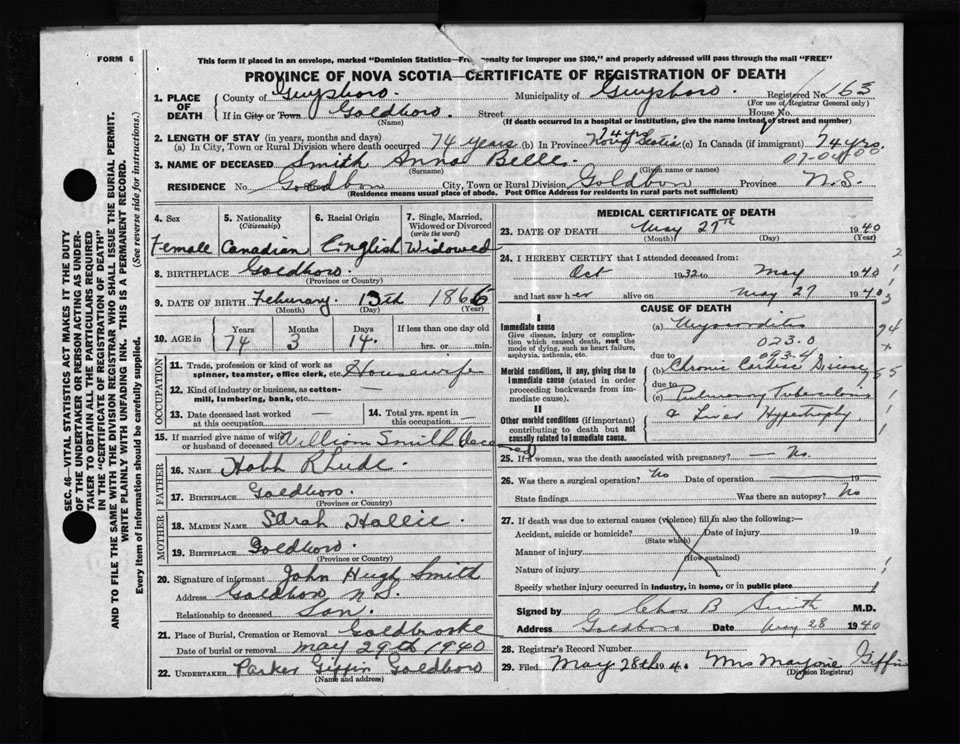 FORM 6
This form if placed in an envelope, marked "Dominion Statistics—Fr penalty for improper use $300," and properly addressed will pass through the mail "FREE"
PROVINCE OF NOVA SCOTIA—CERTIFICATE OF REGISTRATION OF DEATH
1. PLACE OF DEATH
County of Guysboro. Municipality of Guysboro. Registered No. 163
(For use of Registrar General only)
If in City or Town Goldboro Street House No.
(Name) (If death occurred in a hospital or institution, give the name instead of street and number)
2. LENGTH OF STAY (in years, months and days)
(a) In City, Town or Rural Division where death occurred 74 years (b) In Province 74 yrs Nova Scotia (c) In Canada (if immigrant) 74 yrs.
3. NAME OF DECEASED Smith Anna Belle
(Surname) (Given name or names)
RESIDENCE No. Goldboro City, Town or Rural Division Goldboro Province N.S.
(Residence means usual place of abode. Post Office Address for residents in rural parts not sufficient)
4. Sex Female
5. Nationality (Citizenship) Canadian
6. Racial Origin English
7. Single, Married, Widowed or Divorced (write the word) Widowed
8. BIRTHPLACE Goldboro.
(Province or Country)
9. DATE OF BIRTH February 13th 1866
(Month) (Day) (Year)
10. AGE in Years 74 Months 3 Days 14 If less than one day old hrs. or min.
OCCUPATION
11. Trade, profession or kind of work as spinner, teamster, office clerk, etc. Housewife
12. Kind of industry or business, as cotton-mill, lumbering, bank, etc. —
13. Date deceased last worked at this occupation —
14. Total yrs. spent in this occupation —
15. If married give name of wife or husband of deceased William Smith deceased
FATHER
16. NAME Rhude.
17. BIRTHPLACE Goldboro.
(Province or Country)
MOTHER
18. MAIDEN NAME Sarah Hallie.
19. BIRTHPLACE Goldboro.
(Province or Country)
20. Signature of informant John Hugh Smith
Address Goldboro N.S.
Relationship to deceased Son.
21. Place of Burial, Cremation or Removal Goldbrooke
Date of burial or removal May 29th 1940
22. UNDERTAKER Parker Giffin Goldboro
(Name and address)
MEDICAL CERTIFICATE OF DEATH
23. DATE OF DEATH May 27th 1940
(Month) (Day) (Year)
24. I HEREBY CERTIFY that I attended deceased from:
Oct 1932 to May 1940
and last saw her alive on May 27 1940
CAUSE OF DEATH
I
Immediate cause
Give disease, injury or complication which caused death, not the mode of dying, such as heart failure, asphyxia, asthenia, etc.
(a) Myocarditis
023.0
093.4
due to
Morbid conditions, if any, giving rise to immediate cause (stated in order proceeding backwards from immediate cause).
(b) Chronic Cardiac Disease
due to
(c) Pulmonary Tuberculosis
II
Other morbid conditions (if important) contributing to death but not causally related to immediate cause.
& Liver Hypertrophy
25. If a woman, was the death associated with pregnancy? — No.
26. Was there a surgical operation? No Date of operation 19
State findings Was there an autopsy? No
27. If death was due to external causes (violence) fill in also the following:—
Accident, suicide or homicide? Date of injury 19
(State which)
Manner of injury
(How sustained)
Nature of injury
Specify whether injury occurred in industry, in home, or in public place
Signed by Chas B Smith M.D.
Address Goldboro Date May 28 1940
28. Registrar's Record Number
29. Filed May 28th 1940 Mrs Marjorie Giffin
(Division Registrar)
SEC. 46—VITAL STATISTICS ACT MAKES IT THE DUTY
OF THE UNDERTAKER OR PERSON ACTING AS UNDER-
TAKER TO OBTAIN ALL THE PARTICULARS REQUIRED
IN THE "CERTIFICATE OF REGISTRATION OF DEATH"
AND TO FILE THE SAME WITH THE DIVISION REGISTRAR WHO SHALL ISSUE THE BURIAL PERMIT.
WRITE PLAINLY WITH UNFADING INK. THIS IS A PERMANENT RECORD.
Every item of information should be carefully supplied. (See reverse side for instructions.)